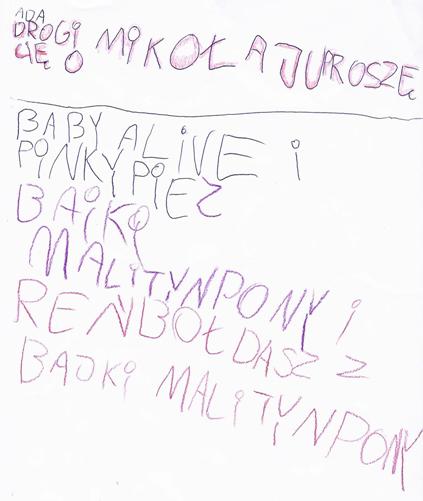 ADA
DROGI MIKOŁAJU PROSZĘ
CIĘ O
BABY ALIVE i
PiNKY PiE Z
BAJKi
MALiTYNPONY i
REŃBOŁDASZ Z
BAJKi MALiTYNPONY